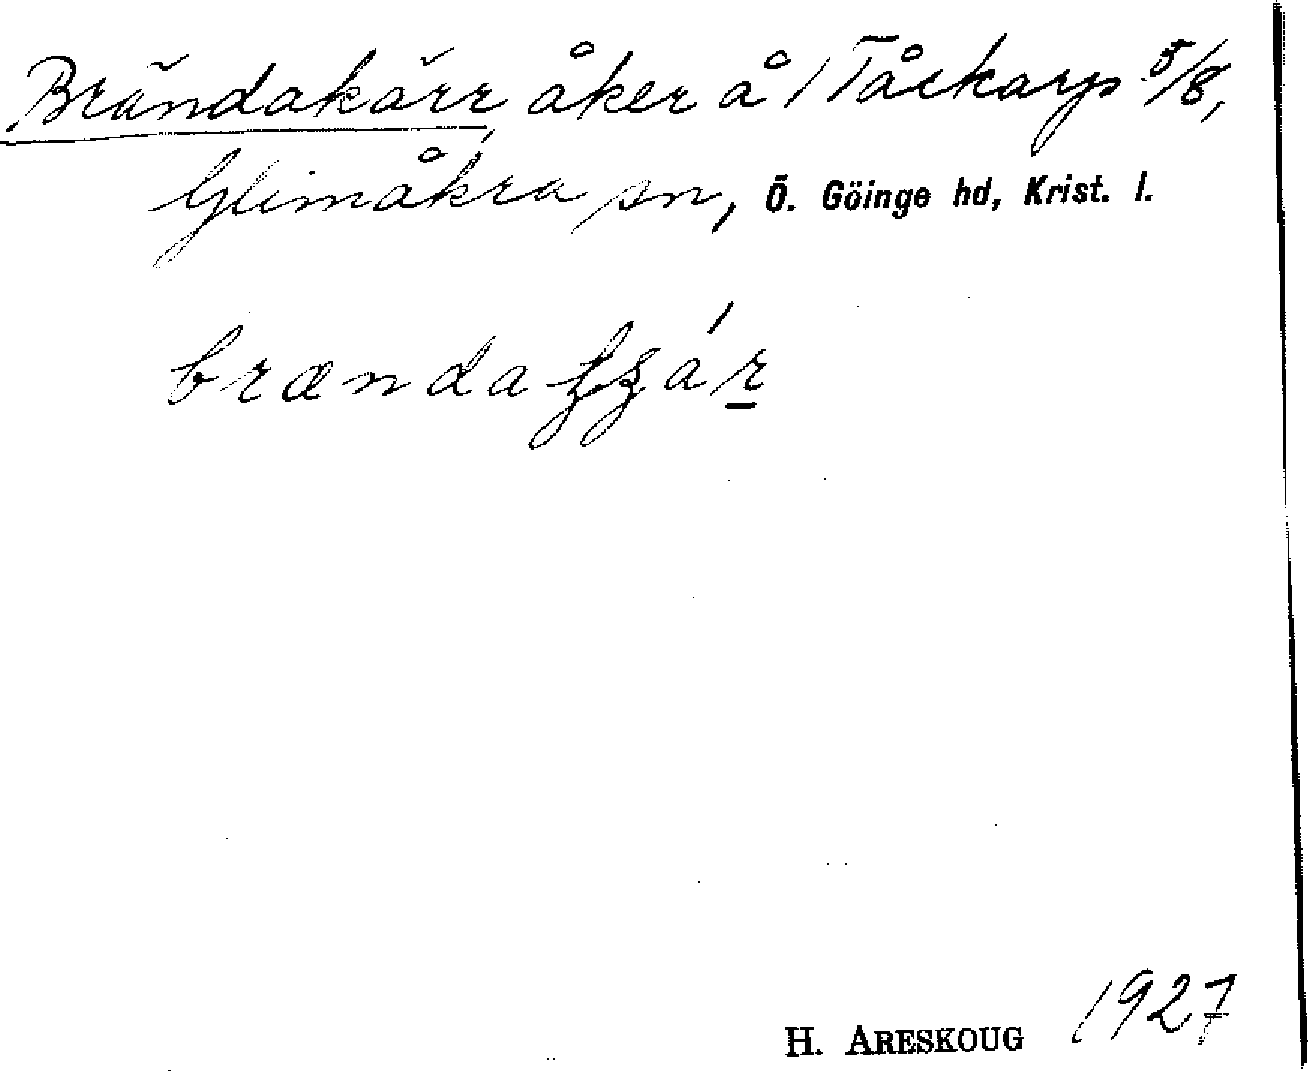 Brändakärr, åker å 1 Tåckarp 5/8,
Glimåkra sn, Ö. Göinge hd, Krist. l.
brænda
H. ARESKOUG 1927